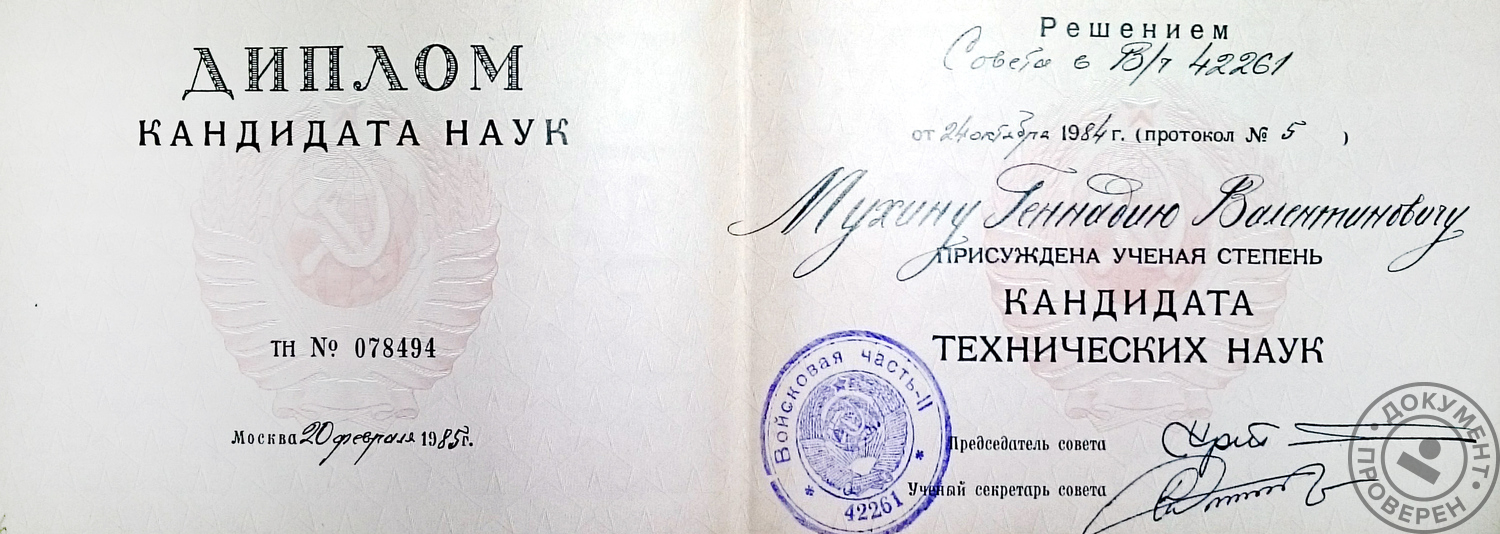 ДИПЛОМ
КАНДИДАТА НАУК
ТН № 078494
Москва 20 февраля 1985г.
Решением
Совета в В/ч 42261
от 24 октября 1984 г. (протокол № 5 )
Мухину Геннадию Валентиновичу
ПРИСУЖДЕНА УЧЕНАЯ СТЕПЕНЬ
КАНДИДАТА
ТЕХНИЧЕСКИХ НАУК
Председатель совета
Ученый секретарь совета
Войсковая часть-II
42261
ДОКУМЕНТ
ПРОВЕРЕН